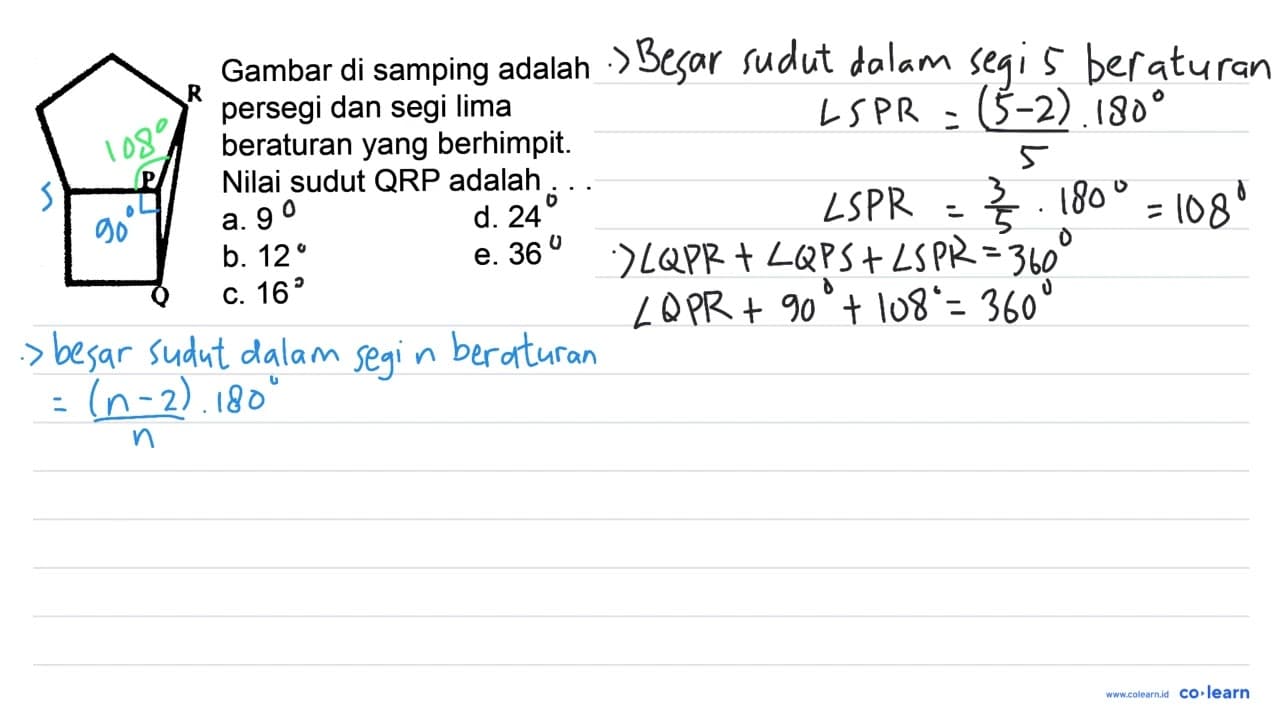 R
108°
P
S
90°
Q
Gambar di samping adalah
persegi dan segi lima
beraturan yang berhimpit.
Nilai sudut QRP adalah . . .
a. 9° d. 24°
b. 12° e. 36°
c. 16°
·> Besar sudut dalam segi 5 beraturan
∠SPR = (5-2) . 180°
5
∠SPR = 3/5 . 180° = 108°
·> ∠QPR + ∠QPS + ∠SPR = 360°
∠QPR + 90° + 108° = 360°
·> besar sudut dalam segi n beraturan
= (n-2) . 180°
n
www.colearn.id co·learn